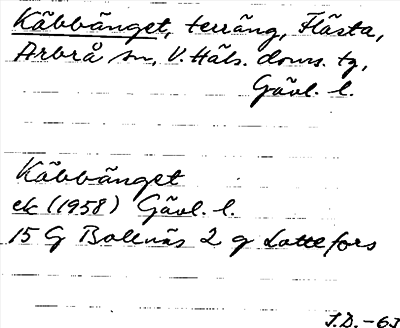 Käbbänget, terräng, Flästa,
Arbrå sn, V. Häls. doms. tg,
Gävl. l.
Käbbänget
ek (1958) Gävl. l.
15 G Bollnäs 2 g Lottefors
J.D. -63